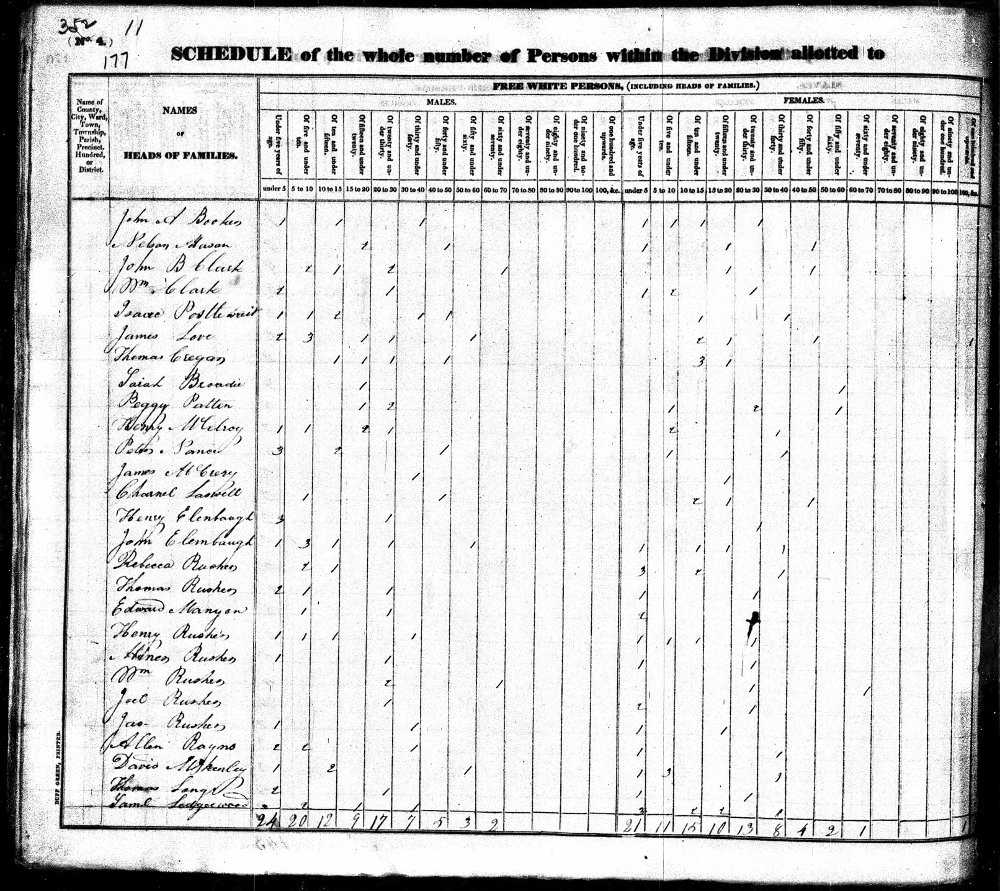 352 11
(No. 4.)
177
SCHEDULE of the whole number of Persons within the Division allotted to
FREE WHITE PERSONS, (INCLUDING HEADS OF FAMILIES.)
MALES. FEMALES.
Name of County, City, Ward, Town, Township, Parish, Precinct, Hundred, or District.
NAMES
OF
HEADS OF FAMILIES.
Under five years of age. Of five and under ten. Of ten and under fifteen. Of fifteen and under twenty. Of twenty and under thirty. Of thirty and under forty. Of forty and under fifty. Of fifty and under sixty. Of sixty and under seventy. Of seventy and under eighty. Of eighty and under ninety. Of ninety and under one hundred. Of one hundred and upwards. Under five years of age. Of five and under ten. Of ten and under fifteen. Of fifteen and under twenty. Of twenty and under thirty. Of thirty and under forty. Of forty and under fifty. Of fifty and under sixty. Of sixty and under seventy. Of seventy and under eighty. Of eighty and under ninety. Of ninety and under one hundred. Of one hundred and upwards.
under 5 5 to 10 10 to 15 15 to 20 20 to 30 30 to 40 40 to 50 50 to 60 60 to 70 70 to 80 80 to 90 90 to 100 100, &c. under 5 5 to 10 10 to 15 15 to 20 20 to 30 30 to 40 40 to 50 50 to 60 60 to 70 70 to 80 80 to 90 90 to 100 100, &c.
John A Booker 1 1 1 1 1 1 1
Nelson Mason 2 1 1 1 1
John B Clark 2 1 2 1 1 1
Wm Clark 2 1 1 2 1
Isaac 1 1 2 1 1 1 1
James Love 2 3 1 1 1 2 1 1 1
Thomas Cregan 1 1 1 1 3 1
Sarah 1 1
Peggy Patten 1 2 1 2 1
Henry McElroy 1 1 2 1 2 1
Nance 3 2 1 1 1
James McCrery 1 1
Laswell 1 1 2 1 1
Henry Elenbaugh 3 1 1
John Elembaugh 1 3 1 1 1 1 1 1 1
Rebecca Rusher 2 1 3 2 1
Thomas Rusher 2 1 1 1 1
Edward Manyon 1 1 2
Henry Rusher 1 1 1 1 1 1 1 1
Rusher 1 1 1 1
Wm Rusher 2 1 1 1
Joel Rusher 1 2 1
Jas Rusher 1 1 1 1
Allen 2 2 1 1 1
David McKenley 1 2 1 1 3 1
Thomas Long 2 1 1 1
Saml Ledgerwood 2 1 1 3 2 2 1
24 20 12 9 17 7 5 3 2 21 11 15 10 13 8 4 2 1 1
DUFF GREEN, PRINTER.